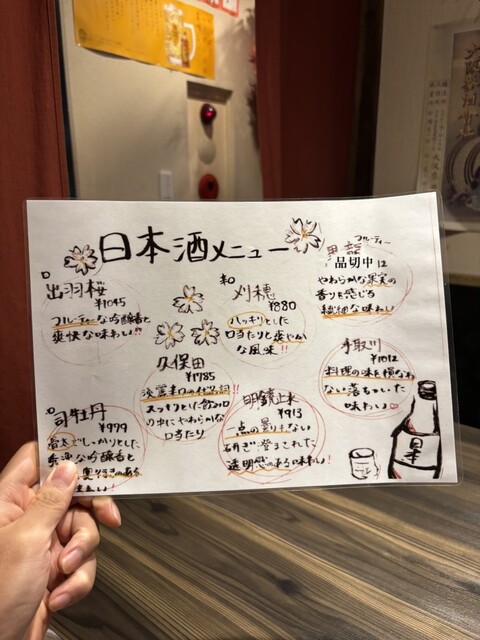 日本酒メニュー
出羽桜
¥1045
フルーティーな吟醸香と
爽快な味わい!!
刈穂
¥880
ハッキリとした
口当たりと爽やか
な風味!!
フルーティー
黒龍
品切中
やわらかな果実の
香りを感じる
繊細な味わい
久保田
¥1785
淡麗辛口の代名詞!!
スッキリとした飲み口
の中にやわらかな
口当たり
手取川
¥1012
料理の味を損なわ
ない落ちついた
味わい♡
司牡丹
¥979
しっかりとした
吟醸香と
奥行きのある
明鏡止水
¥913
一点の曇りもない
研ぎ澄まされた
透明感のある味わい!